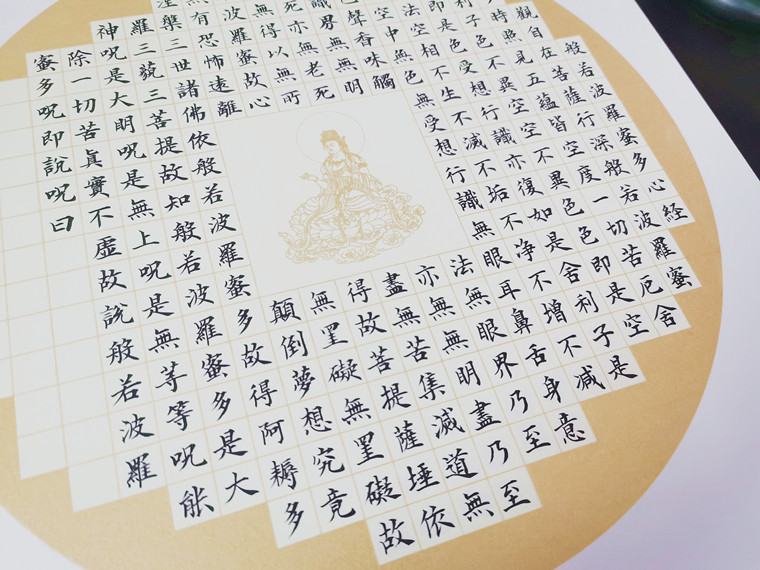 般若波羅蜜多心經
觀自在菩薩行深般若波羅蜜
時照見五蘊皆空度一切苦厄舍
利子色不異空空不異色色即是空
即是色受想行識亦復如是舍利子是
法空相不生不滅不垢不淨不增不減
空中無色無受想行識無眼耳鼻舌身意
色聲香味觸法無眼界乃至
識界無無明亦無無明盡乃至
死亦無老死盡無苦集滅道無
無得以無所得故菩提薩埵依
波羅蜜故心無罣礙無罣礙故
無有恐怖遠離顛倒夢想究竟
涅槃三世諸佛依般若波羅蜜多故得阿耨多
羅三藐三菩提故知般若波羅蜜多是大
神咒是大明咒是無上咒是無等等咒能
除一切苦真實不虛故說般若波羅
蜜多咒即說咒曰